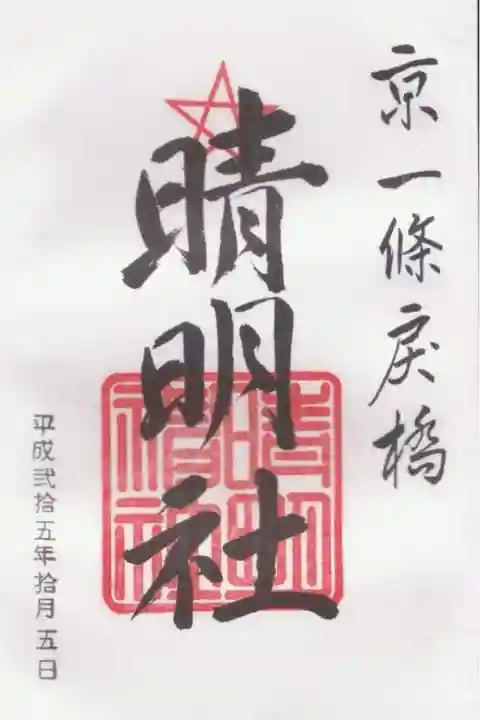 京一條戻橋
晴明社
平成弐拾五年拾月五日